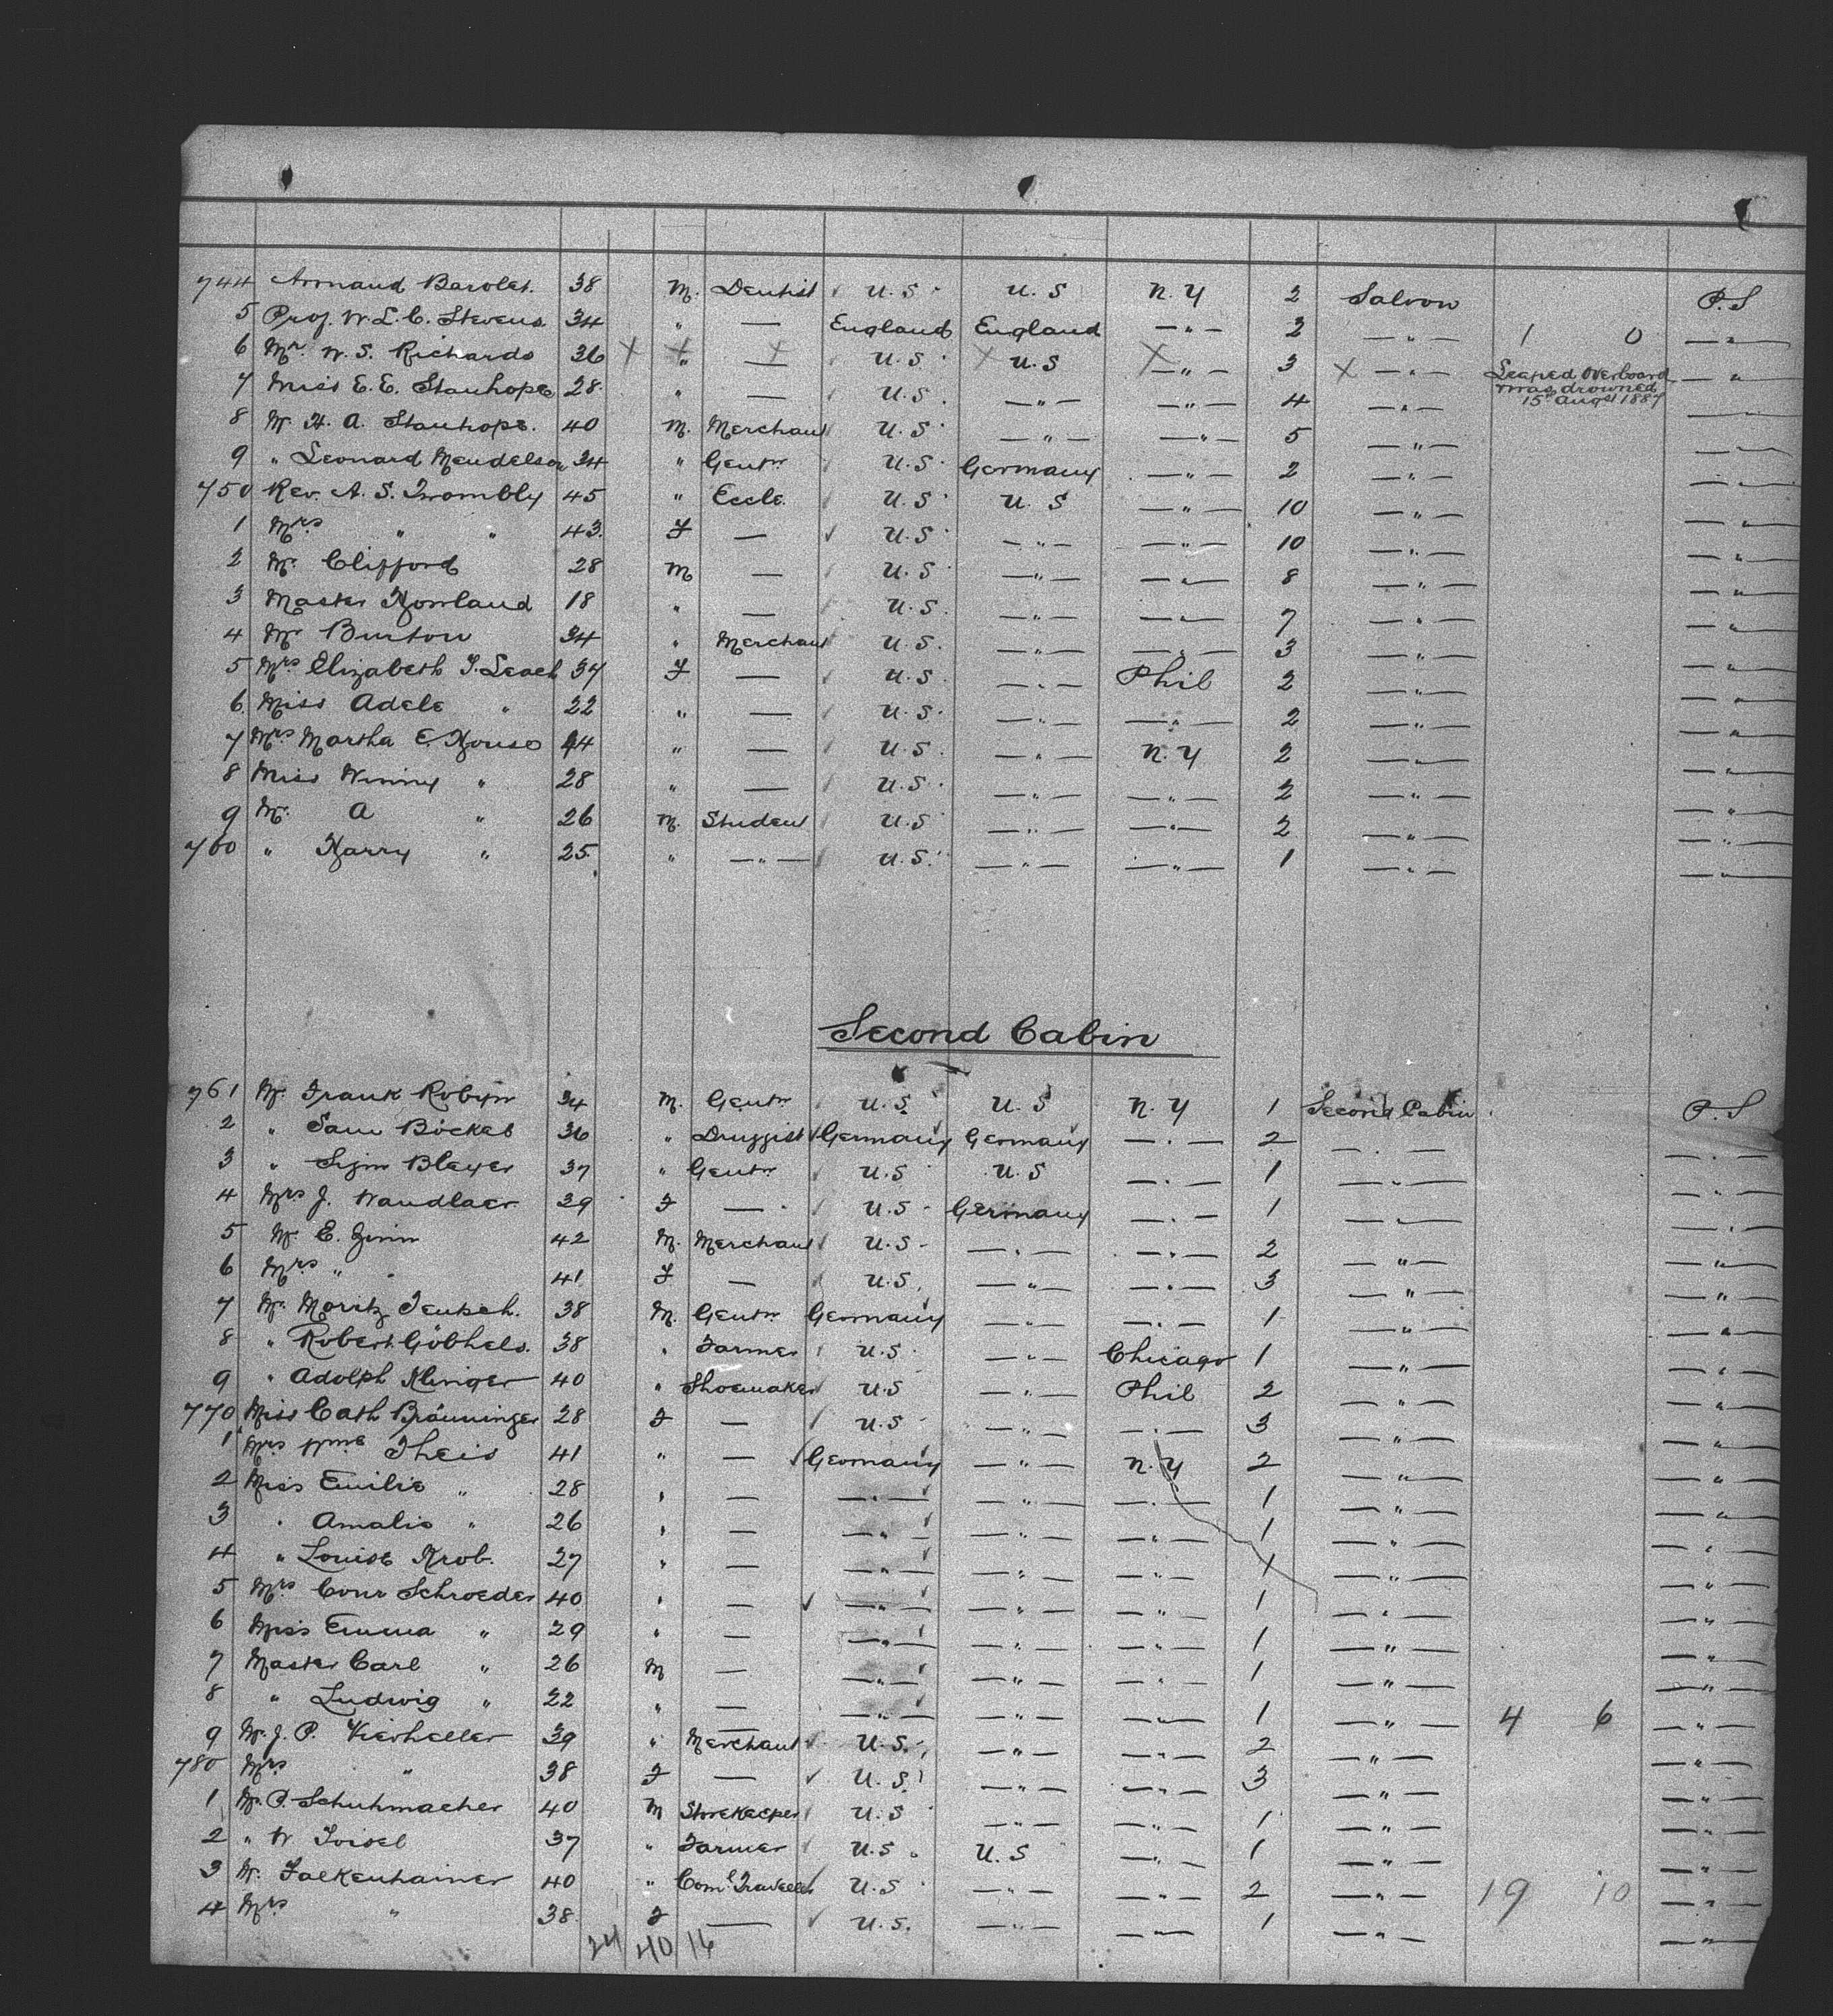 744 Armand Barolet. 38 M. Dentist U.S. U.S N.Y 2 Saloon P.S
5 Prof. W.L.C. Stevens 34 " — England England —"— 2 —"— 1 0 —"—
6 Mr. W.S. Richards 36 X " — U.S. U.S —"— 3 X —"— Leaped Overboard was drowned 15th Augst 1887 —"—
7 Miss E.E. Stanhope 28 " — U.S. —"— —"— 4 —"— —"—
8 Mr H.A. Stanhope. 40 M. Merchant U.S. —"— —"— 5 —"— —"—
9 " Leonard Mendelson 34 " Gentn U.S. Germany —"— 2 —"— —"—
750 Rev. A.S. Twombly 45 " Eccle. U.S. U.S —"— 10 —"— —"—
1 Mrs " " 43. F — U.S. —"— —"— 10 —"— —"—
2 Mr. Clifford 28 M — U.S. —"— —"— 8 —"— —"—
3 Master Howland 18 " — U.S. —"— —"— 7 —"— —"—
4 Mr Burton 34 " Merchant U.S. —"— —"— 3 —"— —"—
5 Mrs Elizabeth J. Leach 37 F — U.S. —"— Phil 2 —"— —"—
6. Miss Adele " 22 " — U.S. —"— —"— 2 —"— —"—
7 Mrs Martha E. House 44 " — U.S. —"— N.Y 2 —"— —"—
8 Miss Winny " 28 " — U.S. —"— —"— 2 —"— —"—
9 Mr. A " 26 M. Student U.S. —"— —"— 2 —"— —"—
760 " Harry " 25. " —"— U.S. —"— —"— 1 —"— —"—
Second Cabin
761 Mr. Frank Robyn 34 M. Gentn U.S. U.S N.Y 1 Second Cabin P.S
2 " Sam Böckel 36 " Druggist Germany Germany —"— 2 —"— —"—
3 " Sigm Bleyer 37 " Gentn U.S. U.S —"— 1 —"— —"—
4 Mrs J. Wandlaer 29 F — U.S. Germany —"— 1 —"— —"—
5 Mr. E. Zinn 42 M. Merchant U.S. —"— —"— 2 —"— —"—
6 Mrs " " 41 F — U.S. —"— —"— 3 —"— —"—
7 Mr. Moritz Teutsch. 38 M. Gentn Germany —"— —"— 1 —"— —"—
8 " Robert Göbhels. 38 " Farmer U.S. —"— Chicago 1 —"— —"—
9 " Adolph Klinger 40 " Shoemaker U.S —"— Phil 2 —"— —"—
770 Miss Cath Bräuninger 28 F — U.S. —"— —"— 3 —"— —"—
1 Mrs Wme Theis 41 " — Germany —"— N.Y 2 —"— —"—
2 Miss Emilie " 28 " — —"— —"— —"— 1 —"— —"—
3 " Amalie " 26 " — —"— —"— —"— 1 —"— —"—
4 " Louise Krob. 27 " — —"— —"— —"— 1 —"— —"—
5 Mrs Conr Schroeder 40 " — —"— —"— —"— 1 —"— —"—
6 Miss Emma " 29 " — —"— —"— —"— 1 —"— —"—
7 Master Carl " 26 M — —"— —"— —"— 1 —"— —"—
8 " Ludwig " 22 " — —"— —"— —"— 1 —"— 4 6 —"—
9 Mr. J.P. Vierheller 39 " Merchant U.S. —"— —"— 2 —"— —"—
780 Mrs " 38 F — U.S. —"— —"— 3 —"— —"—
1 Mr. P. Schuhmacher 40 M Storekeeper U.S. —"— —"— 1 —"— —"—
2 " W. Loisel 37 " Farmer U.S. U.S —"— 1 —"— —"—
3 Mr. Falkenhainer 40 " Coml Traveller U.S. —"— —"— 2 —"— 19 10 —"—
4 Mrs " 38. F — U.S. —"— —"— 1 —"— —"—
24 40 16